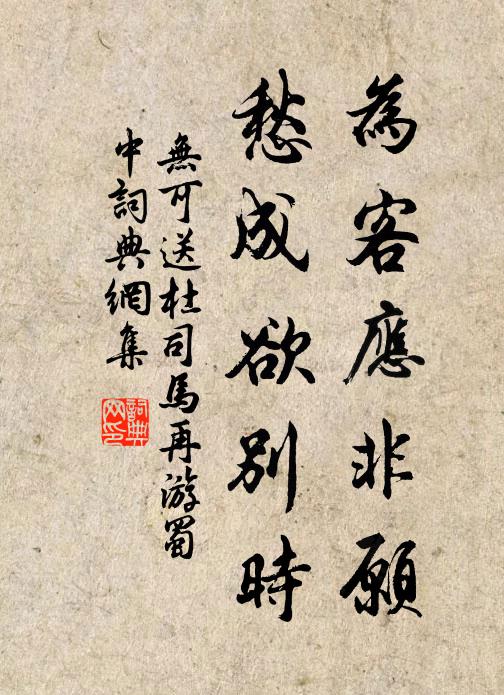 為客應非願
愁成欲別時
無可送杜司馬再游蜀
中詞典網集
詞典
网印